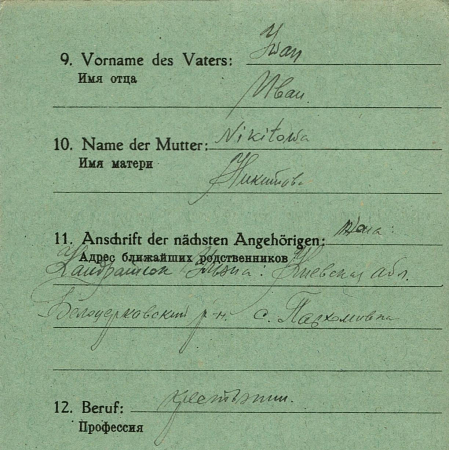 9. Vorname des Vaters: Iwan
Имя отца
Иван
10. Name der Mutter: Nikitowa
Имя матери
Никитова
11. Anschrift der nächsten Angehörigen: жена:
Адрес ближайших родственников
Кандратюк : Киевская обл.
Белоцерковский р-н. с. Пархомовка
12. Beruf: крестьянин.
Профессия